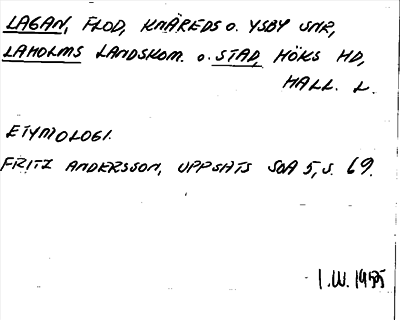 LAGAN, FLOD, KNÄREDS O. YSBY SNR,
LAHOLMS LANDSKOM. O. STAD, HÖKS HD,
HALL. L.
ETYMOLOGI.
FRITZ ANDERSSON, UPPSATS SOA 5, S. 69.
I.W. 1955